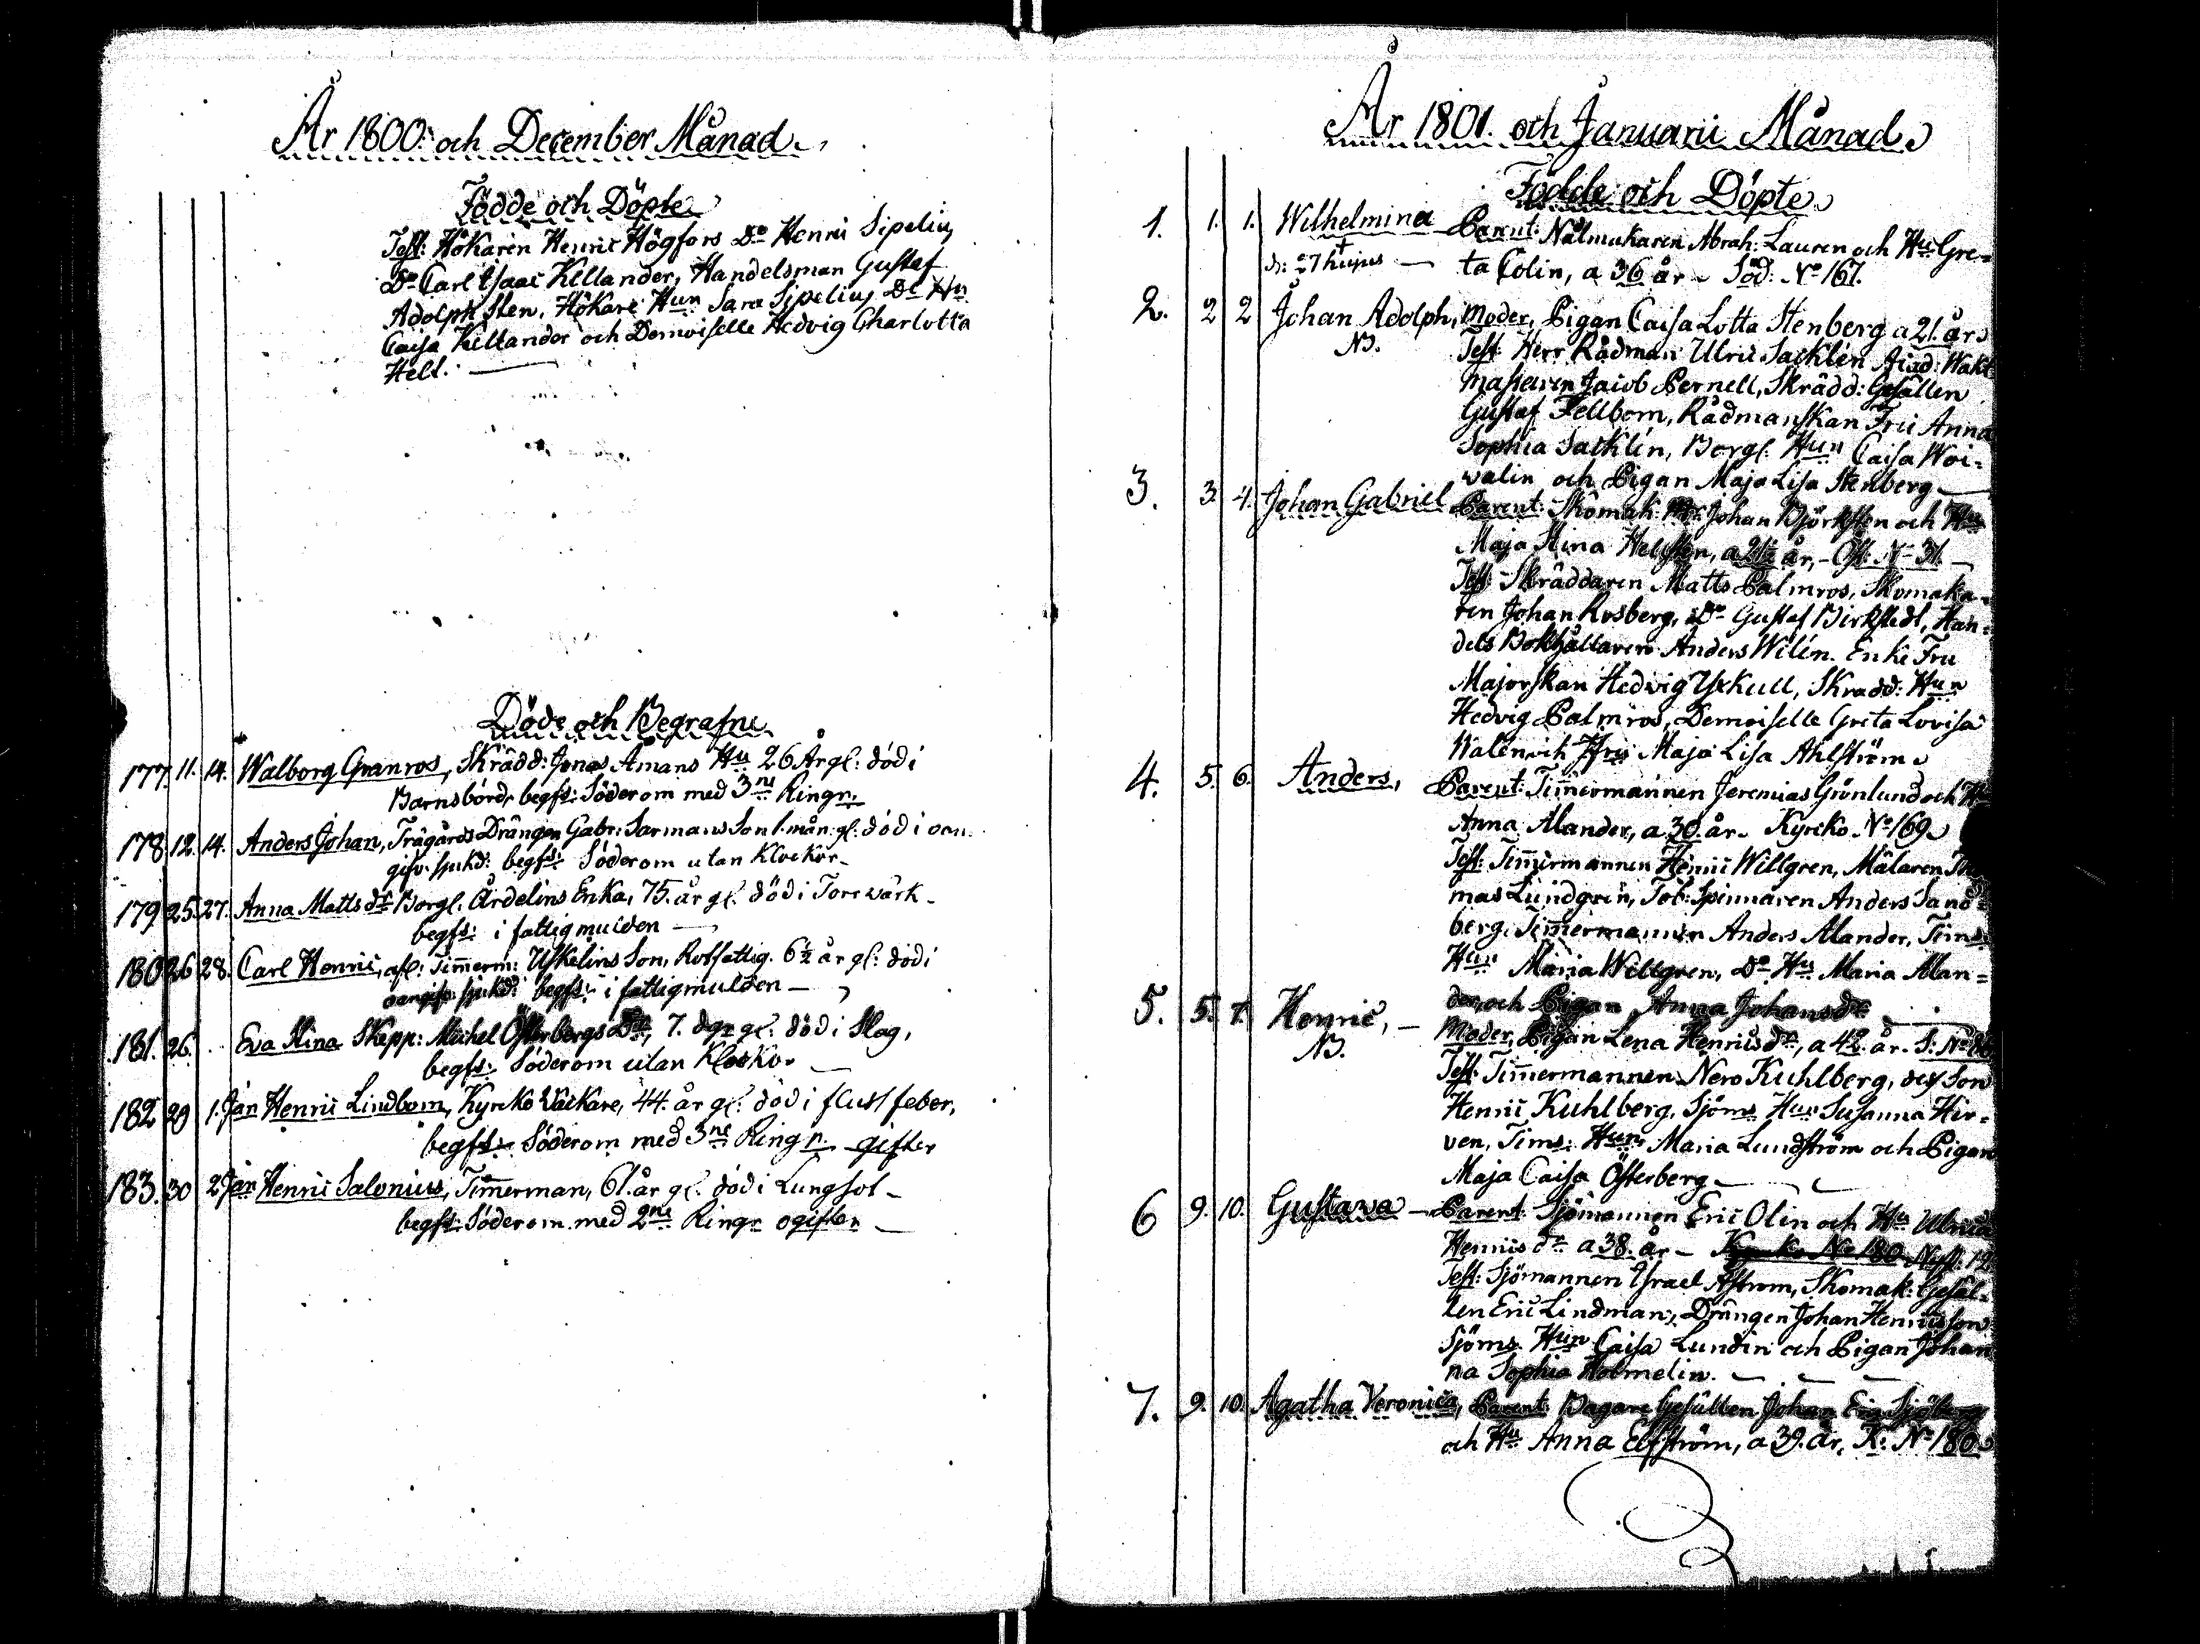 År 1800. och December Månad.
Födde och Döpte
Test: Hökaren Henric Högfors Do Henric Sipelius
Do Carl Isaac Killander, Handelsman Gustaf
Adolph Sten, Hökare Hun Sara Sipelius Do Hu
Caisa Killander och Demoiselle Hedvig Charlotta
Hell.
Döde och Begrafne
177. 11. 14. Walborg Granros, Skrädd: Jonas Åmans Hu 26 År gl: död i
Barnsbörd, begfs: Söderom med 3ne Ringr.
178 12. 14. Anders Johan, Trägårds Drängen Gabr: Sarmans Son 1. mån: gl: död i oan
gifv: sjukd: begfs: Söderom utan Klockor
179 25. 27. Anna Matts dr Borgl. Ärdelins Enka, 75. år gl. död i Torrwärk
begfs: i fattigmulden
180 26 28. Carl Henric, afl: Timerm: Uskelins Son, Rotfattig. 6½ år gl: död i
oangifv: sjukd: begfs: i fattigmulden
181. 26. Eva Stina Skepp: Michel Österbergs Dr, 7. dgr gl: död i Slag,
begfs: Söderom utan Klockor
182 29 1. Jan Henric Lindbom, Kyrko Wäckare, 44. år gl: död i fluss feber,
begfs: Söderom med 3ne Ringr. gifter
183. 30 2. Jan Henric Salonius, Timerman, 61. år gl. död i Lungsot
begfs: Söderom med 2ne Ringr ogifter
År 1801. och Januarii Månad
Födde och Döpte
1. 1. 1. Wilhelmina Parent: Nålmakaren Abrah: Lauren och Hu Gre=
d: 27 hujus ta Colin, a 36 år Söd: No 167.
2. 2 2 Johan Adolph, Moder, Pigan Caisa Lotta Stenberg a 21. år
NB. Test: Herr Rådman Ulric Sacklén Wakt
mästaren Jacob Pernell, Skrädd: Gesällen
Gustaf Fellbom, Rådmanskan Fru Anna
Sophia Sacklén, Borgl: Hun Caisa Woi=
walin och Pigan Maja Lisa Stenberg
3. 3. 4. Johan Gabriel Parent: Skomak: Johan Björksten och Hu
Maja Stina Hellsten, a 21½ år, Öst: No 31.
Test: Skräddaren Matts Palmros, Skomaka=
ren Johan Rosberg, Do Gustaf Birkstedt, Han=
dels Bokhållaren Anders Wilén. Enke Fru
Majorskan Hedvig Yxkull, Skrädd: Hun
Hedvig Palmros, Demoiselle Greta Lovisa
Walén och Maja Lisa Ahlström
4. 5. 6. Anders, Parent: Timermannen Jeremias Grönlund och Hu
Anna Alander, a 30. år. Kyrko No 169
Test: Timermannen Henric Willgren, Målaren Tho
mas Lundgrén, Tob: Spinnaren Anders Sand=
berg, Timermannen Anders Alander, Tims:
Hun Maria Willgren, Do Hu Maria Alan=
der, och Pigan Anna Johans dr
5. 5. 7. Henric, Moder, Pigan Lena Henrics dr, a 42. år. S: No
NB. Test: Timermannen Nero Kuhlberg, dess Son
Henric Kuhlberg, Sjöms Hun Susanna Hir=
ven, Tims: Hun Maria Lundström och Pigan
Maja Caisa Österberg
6 9. 10. Gustava Parent: Sjömannen Eric Olin och Hu Ulrica
Henrics dr a 38. år Kyrko No 180 Nyst: 12
Test: Sjömannen Israel Åström, Skomak: Gesäl=
len Eric Lindman, Drängen Johan Henricsson
Sjöms Hun Caisa Lundin och Pigan Johan
na Sophia Holmelin.
7. 9. 10. Agatha Veronica, Parent: Bagare Gesällen Johan Eric Sjöberg
och Hu Anna Elfström, a 39. år, K: No 180.